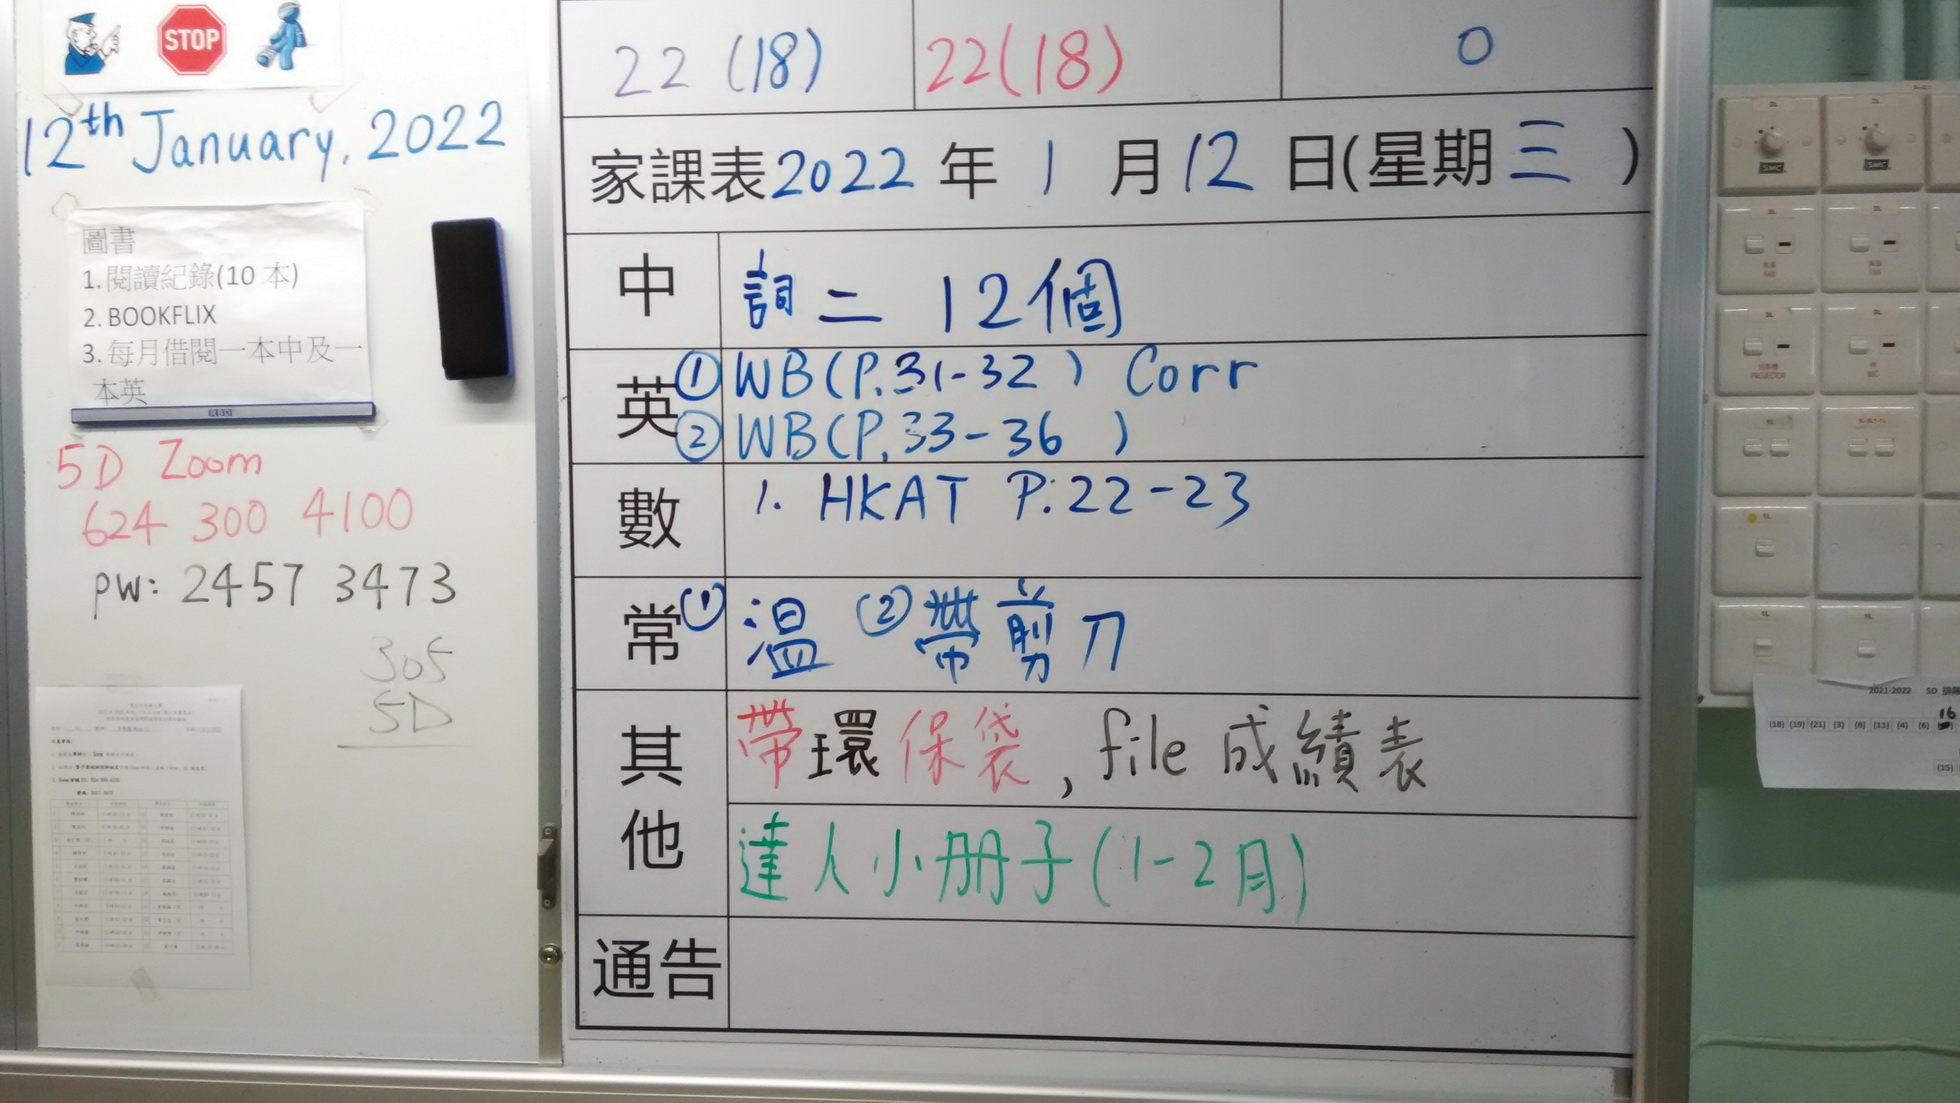 STOP
12th January, 2022
圖書
1. 閱讀紀錄(10 本)
2. BOOKFLIX
3. 每月借閱一本中及一
本英
5D Zoom
624 300 4100
pw: 2457 3473
305
5D
22 (18) 22(18) 0
家課表2022 年 1 月 12 日(星期三)
中 詞二 12個
英 ① WB(P.31-32) Corr
② WB(P.33-36)
數 1. HKAT P.22-23
常 ① 溫 ② 帶剪刀
其他 帶環保袋, file 成績表
達人小册子(1-2月)
通告
2021-2022 5D
(18) (19) (21) (3) (8) (11) (4) (6) 16
(15)